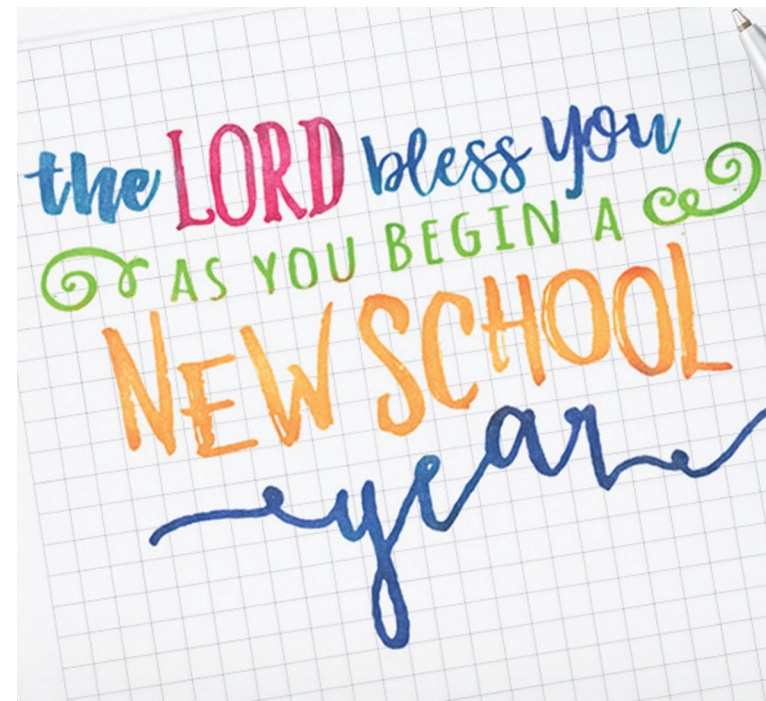 the LORD bless you
AS YOU BEGIN A
NEW SCHOOL
year